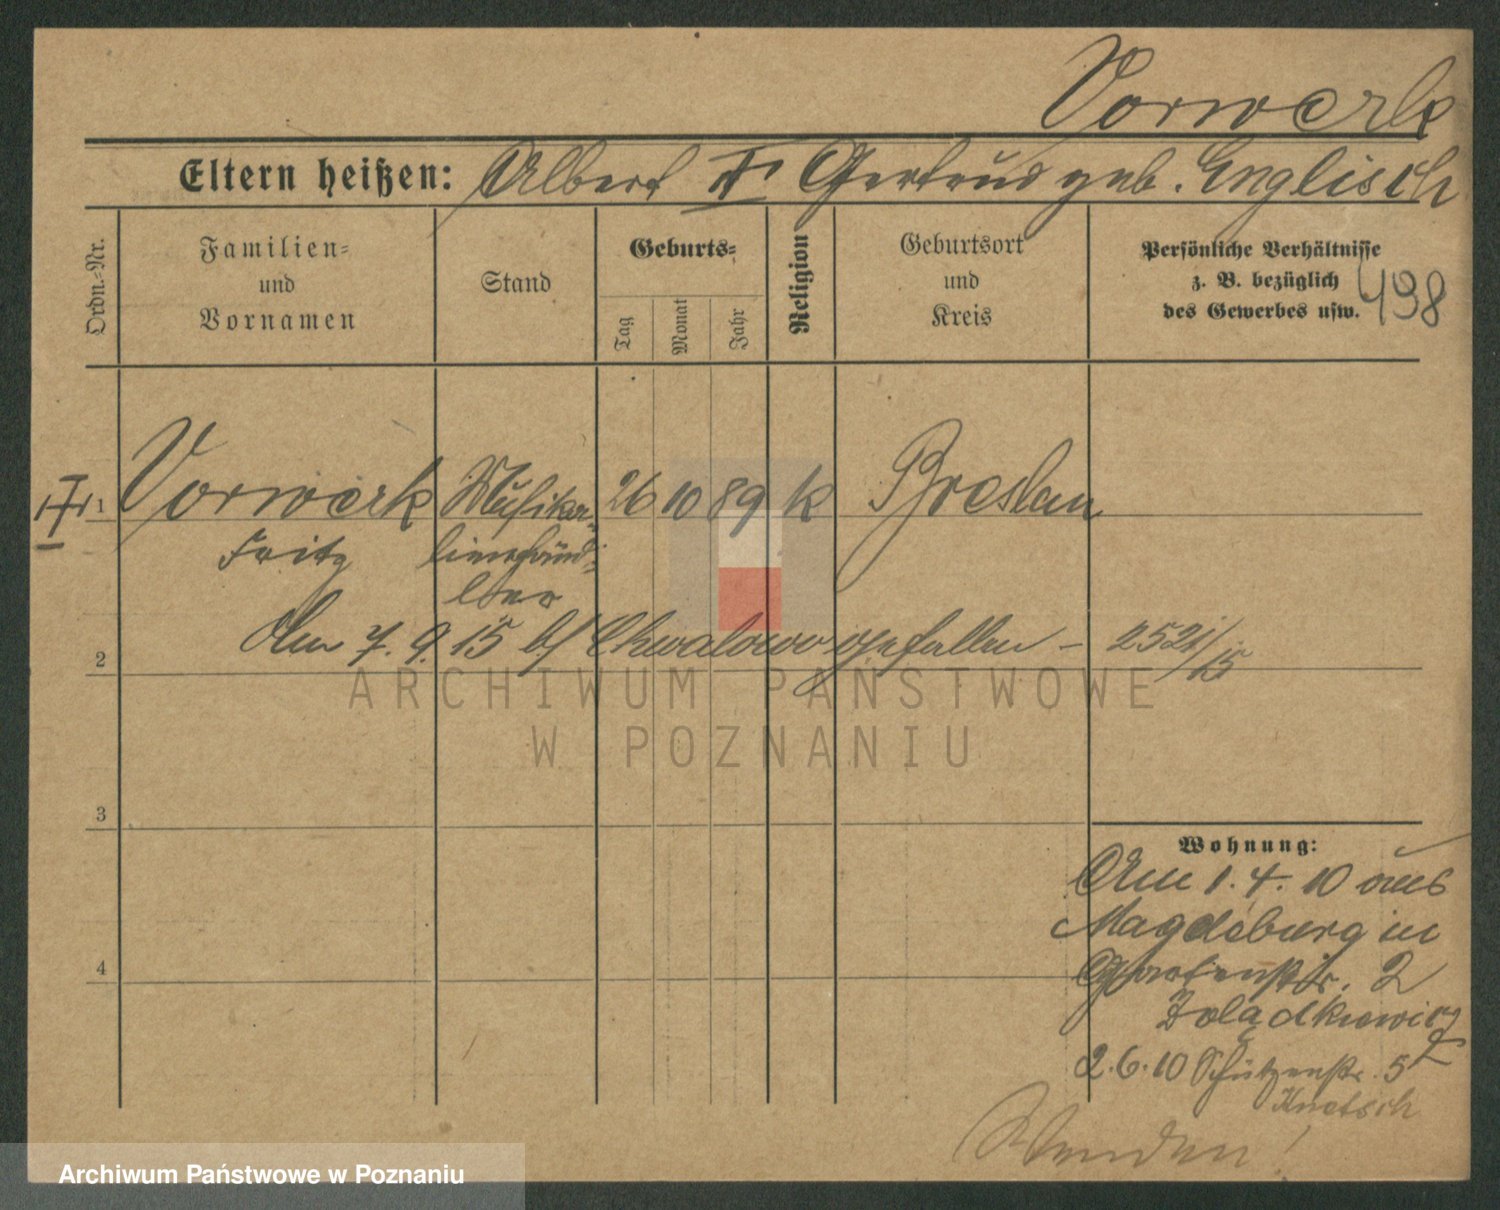 Vorwerk
Eltern heißen: Albert u. Gertrud geb. Englisch
Ordn.-Nr.
Familien-
und
Vornamen
Stand
Geburts-
Tag
Monat
Jahr
Religion
Geburtsort
und
Kreis
Persönliche Verhältnisse
z. B. bezüglich
des Gewerbes usw.
498
1 Vorwerk Musika- 26 10 89 k Breslau
Fritz lienhänd-
ler
Am 7. 9. 15 b/ Chwalowo gefallen – 2521/15
2
3
4
Wohnung:
Am 1. 4. 10 aus
Magdeburg in
Gartenstr. 2
Żolądkiewicz
2. 6. 10 Schützenstr. 5
Knetsch
Wenden!
ARCHIWUM PAŃSTWOWE
W POZNANIU
Archiwum Państwowe w Poznaniu